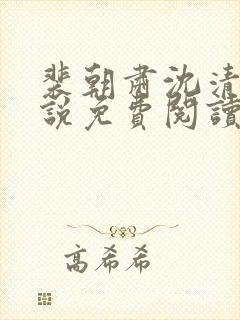 裴朝肅沈清
說免費閱讀
高希希